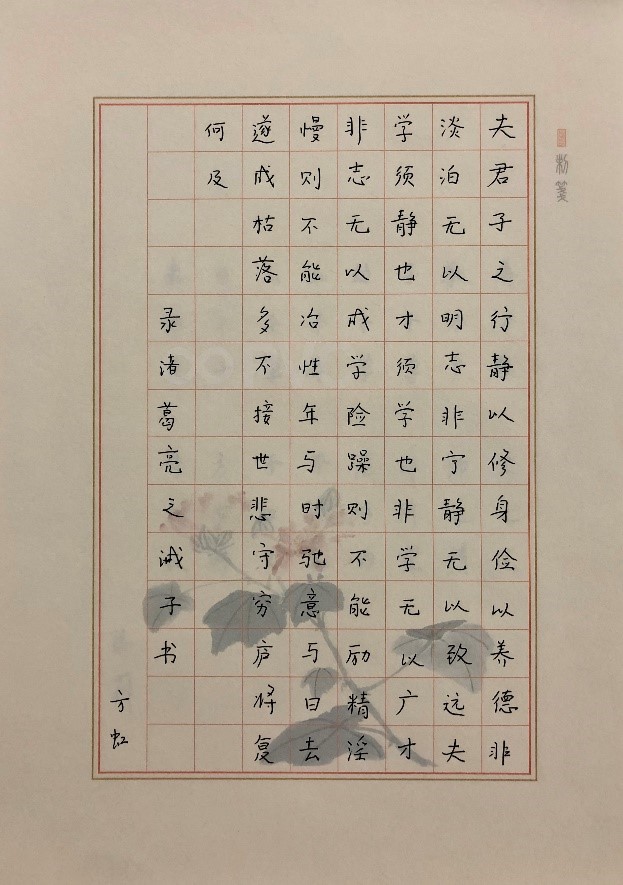 夫君子之行静以修身俭以养德非
淡泊无以明志非宁静无以致远夫
学须静也才须学也非学无以广才
非志无以成学险躁则不能励精淫
慢则不能冶性年与时驰意与日去
遂成枯落多不接世悲守穷庐将复
何及
录渚葛亮之诫子书
方虹